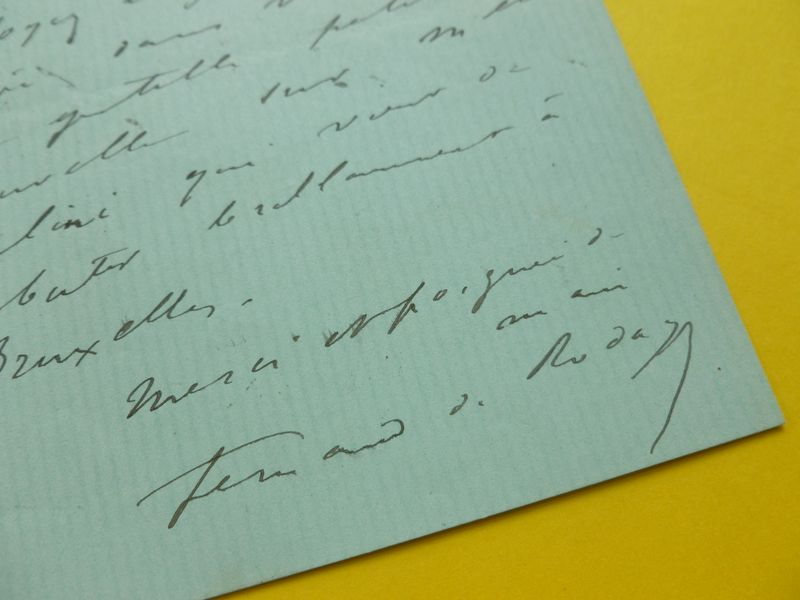 dans
gentille sur m
qui vient de
buter brillamment à
Bruxelles.
Merci et poignée de
main
Fernand de Rodays